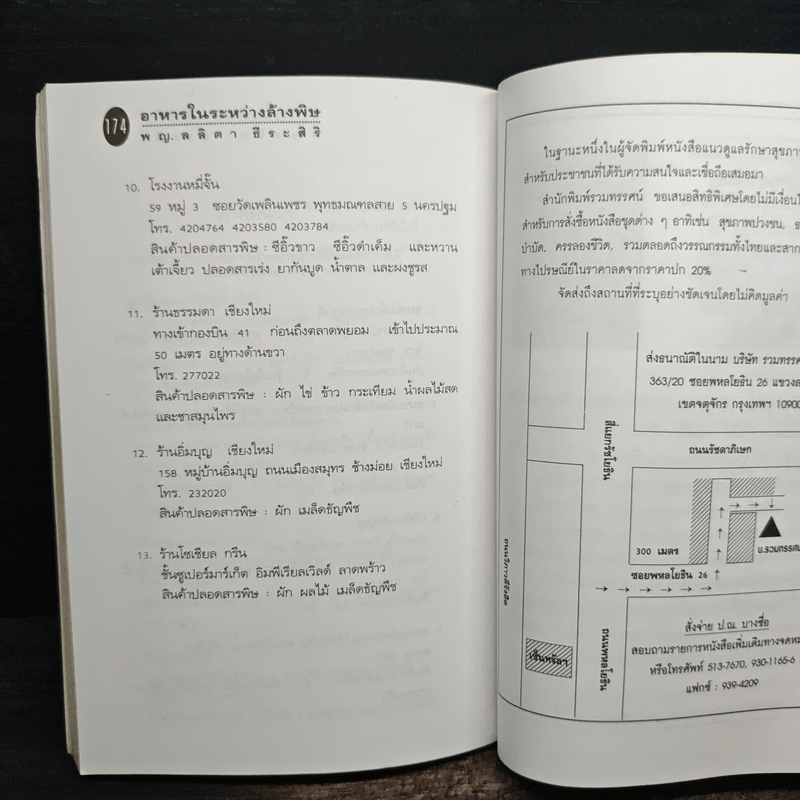 174
อาหารในระหว่างล้างพิษ
พญ. ลลิตา ธีระสิริ
10. โรงงานหมี่จั๊น
59 หมู่ 3 ซอยวัดเพลินเพชร พุทธมณฑลสาย 5 นครปฐม
โทร. 4204764 4203580 4203784
สินค้าปลอดสารพิษ : ซีอิ๊วขาว ซีอิ๊วดำเค็ม และหวาน
เต้าเจี้ยว ปลอดสารเร่ง ยากันบูด น้ำตาล และผงชูรส
11. ร้านธรรมดา เชียงใหม่
ทางเข้ากองบิน 41 ก่อนถึงตลาดพยอม เข้าไปประมาณ
50 เมตร อยู่ทางด้านขวา
โทร. 277022
สินค้าปลอดสารพิษ : ผัก ไข่ ข้าว กระเทียม น้ำผลไม้สด
และชาสมุนไพร
12. ร้านอิ่มบุญ เชียงใหม่
158 หมู่บ้านอิ่มบุญ ถนนเมืองสมุทร ช้างม่อย เชียงใหม่
โทร. 232020
สินค้าปลอดสารพิษ : ผัก เมล็ดธัญพืช
13. ร้านโซเชียล กรีน
ชั้นซูเปอร์มาร์เก็ต อิมพีเรียลเวิลด์ ลาดพร้าว
สินค้าปลอดสารพิษ : ผัก ผลไม้ เมล็ดธัญพืช
ในฐานะหนึ่งในผู้จัดพิมพ์หนังสือแนวดูแลรักษาสุขภา
สำหรับประชาชนที่ได้รับความสนใจและเชื่อถือเสมอมา
สำนักพิมพ์รวมทรรศน์ ขอเสนอสิทธิพิเศษโดยไม่มีเงื่อนไ
สำหรับการสั่งซื้อหนังสือชุดต่าง ๆ อาทิเช่น สุขภาพปวงชน, ธ
บำบัด, ครรลองชีวิต, รวมตลอดถึงวรรณกรรมทั้งไทยและสาก
ทางไปรษณีย์ในราคาลดจากราคาปก 20%
จัดส่งถึงสถานที่ที่ระบุอย่างชัดเจนโดยไม่คิดมูลค่า
ส่งธนาณัติในนาม บริษัท รวมทรรศ
363/20 ซอยพหลโยธิน 26 แขวงล
เขตจตุจักร กรุงเทพฯ 10900
สี่แยกรัชโยธิน
ถนนรัชดาภิเษก
300 เมตร
บ.รวมทรรศน
ซอยพหลโยธิน 26
ถนนวิภาวดีรังสิต
เซ็นทรัลฯ
ถนนพหลโยธิน
สั่งจ่าย ป.ณ. บางซื่อ
สอบถามรายการหนังสือเพิ่มเติมทางจดห
หรือโทรศัพท์ 513-7670, 930-1165-6
แฟกซ์ : 939-4209